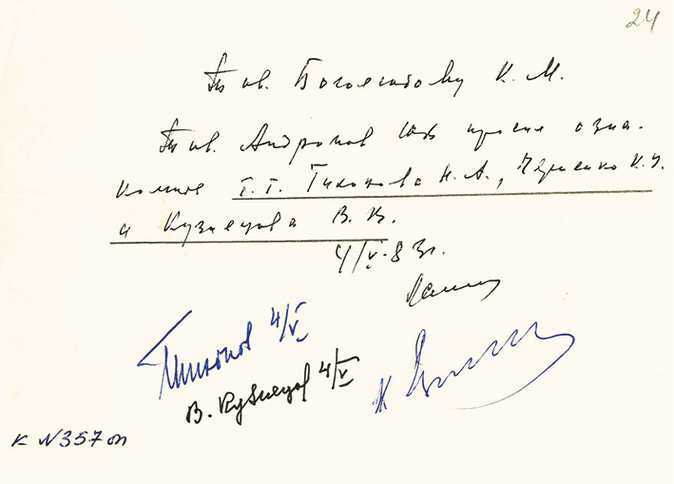 24
Тов. Боголюбову К. М.
Тов. Андропов Ю.В. просил озна-
комить т.т. Тихонова Н.А., Черненко К.У.
и Кузнецова В. В.
4/V-83г.
Тихонов 4/V
В. Кузнецов 4/V
К №357оп